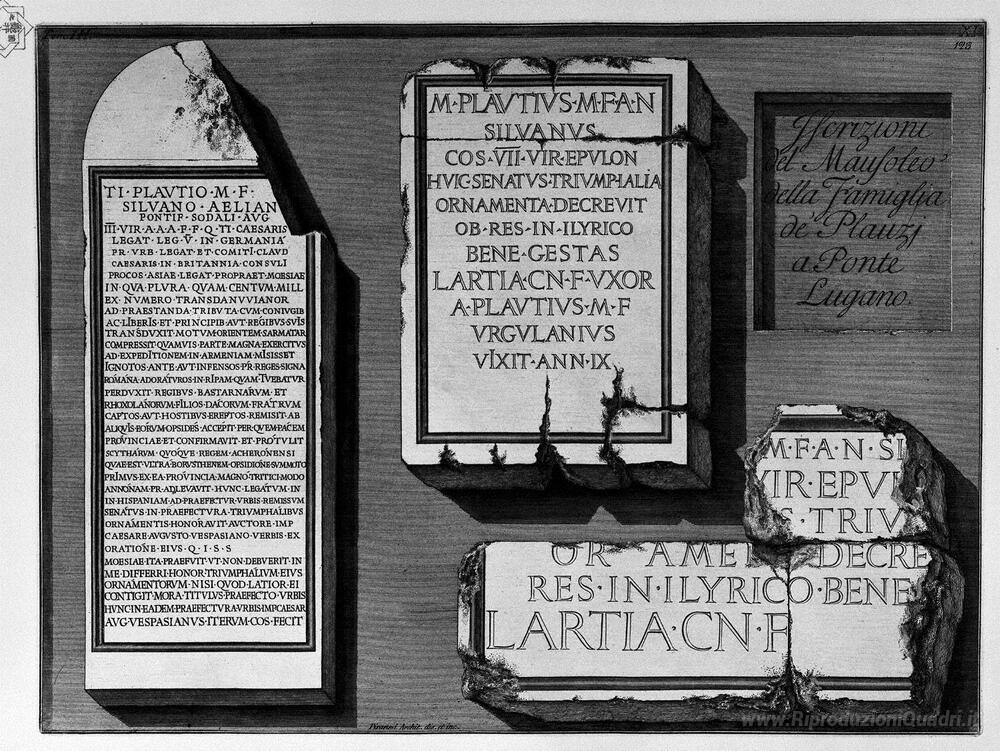 XI
128
TI·PLAVTIO·M·F·
SILVANO·AELIAN
PONTIF·SODALI·AVG
III·VIR·A·A·A·F·F·Q·TI·CAESARIS
LEGAT·LEG·V·IN·GERMANIA
PR·VRB·LEGAT·ET·COMITI·CLAVD
CAESARIS·IN·BRITANNIA·CONSVLI
PROCOS·ASIAE·LEGAT·PROPRAET·MOESIAE
IN·QVA·PLVRA·QVAM·CENTVM·MILL
EX·NVMERO·TRANSDANVVIANOR
AD·PRAESTANDA·TRIBVTA·CVM·CONIVGIB
AC·LIBERIS·ET·PRINCIPIB·AVT·REGIBVS·SVIS
TRANSDVXIT·MOTVM·ORIENTEM·SARMATAR
COMPRESSIT·QVAMVIS·PARTE·MAGNA·EXERCITVS
AD·EXPEDITIONEM·IN·ARMENIAM·MISISSET
IGNOTOS·ANTE·AVT·INFENSOS·P·R·REGES·SIGNA
ROMANA·ADORATVROS·IN·RIPAM·QVAM·TVEBATVR
PERDVXIT·REGIBVS·BASTARNARVM·ET
RHOXOLANORVM·FILIOS·DACORVM·FRATRVM
CAPTOS·AVT·HOSTIBVS·EREPTOS·REMISIT·AB
ALIQVIS·EORVM·OPSIDES·ACCEPIT·PER·QVEM·PACEM
PROVINCIAE·ET·CONFIRMAVIT·ET·PROTVLIT
SCYTHARVM·QVOQVE·REGEM·ACHERONENSI
QVAE·EST·VLTRA·BORVSTHENEM·OPSIDIONE·SVMMOTO
PRIMVS·EX·EA·PROVINCIA·MAGNO·TRITICI·MODO
ANNONAM·P·R·ADLEVAVIT·HVNC·LEGATVM·IN
IN·HISPANIAM·AD·PRAEFECTVR·VRBIS·REMISSVM
SENATVS·IN·PRAEFECTVRA·TRIVMPHALIBVS
ORNAMENTIS·HONORAVIT·AVCTORE·IMP
CAESARE·AVGVSTO·VESPASIANO·VERBIS·EX
ORATIONE·EIVS·Q·I·S·S
MOESIAE·ITA·PRAEFVIT·VT·NON·DEBVERIT·IN
ME·DIFFERRI·HONOR·TRIVMPHALIVM·EIVS
ORNAMENTORVM·NISI·QVOD·LATIOR·EI
CONTIGIT·MORA·TITVLVS·PRAEFECTO·VRBIS
HVNC·IN·EADEM·PRAEFECTVRA·VRBIS·IMP·CAESAR
AVG·VESPASIANVS·ITERVM·COS·FECIT
M·PLAVTIVS·M·F·A·N
SILVANVS
COS·VII·VIR·EPVLON
HVIC·SENATVS·TRIVMPHALIA
ORNAMENTA·DECREVIT
OB·RES·IN·ILYRICO
BENE·GESTAS
LARTIA·CN·F·VXOR
A·PLAVTIVS·M·F
VRGVLANIVS
VIXIT·ANN·IX
Iscrizioni
del Mausoleo
della Famiglia
de' Plauzj
a Ponte
Lugano
M·F·A·N·SI
VIR·EPVL
S·TRIV
OR AME DECRE
RES·IN·ILYRICO·BENE
LARTIA·CN·F
Piranesi Archit. dis. et inc.
www.RiproduzioniQuadri.it